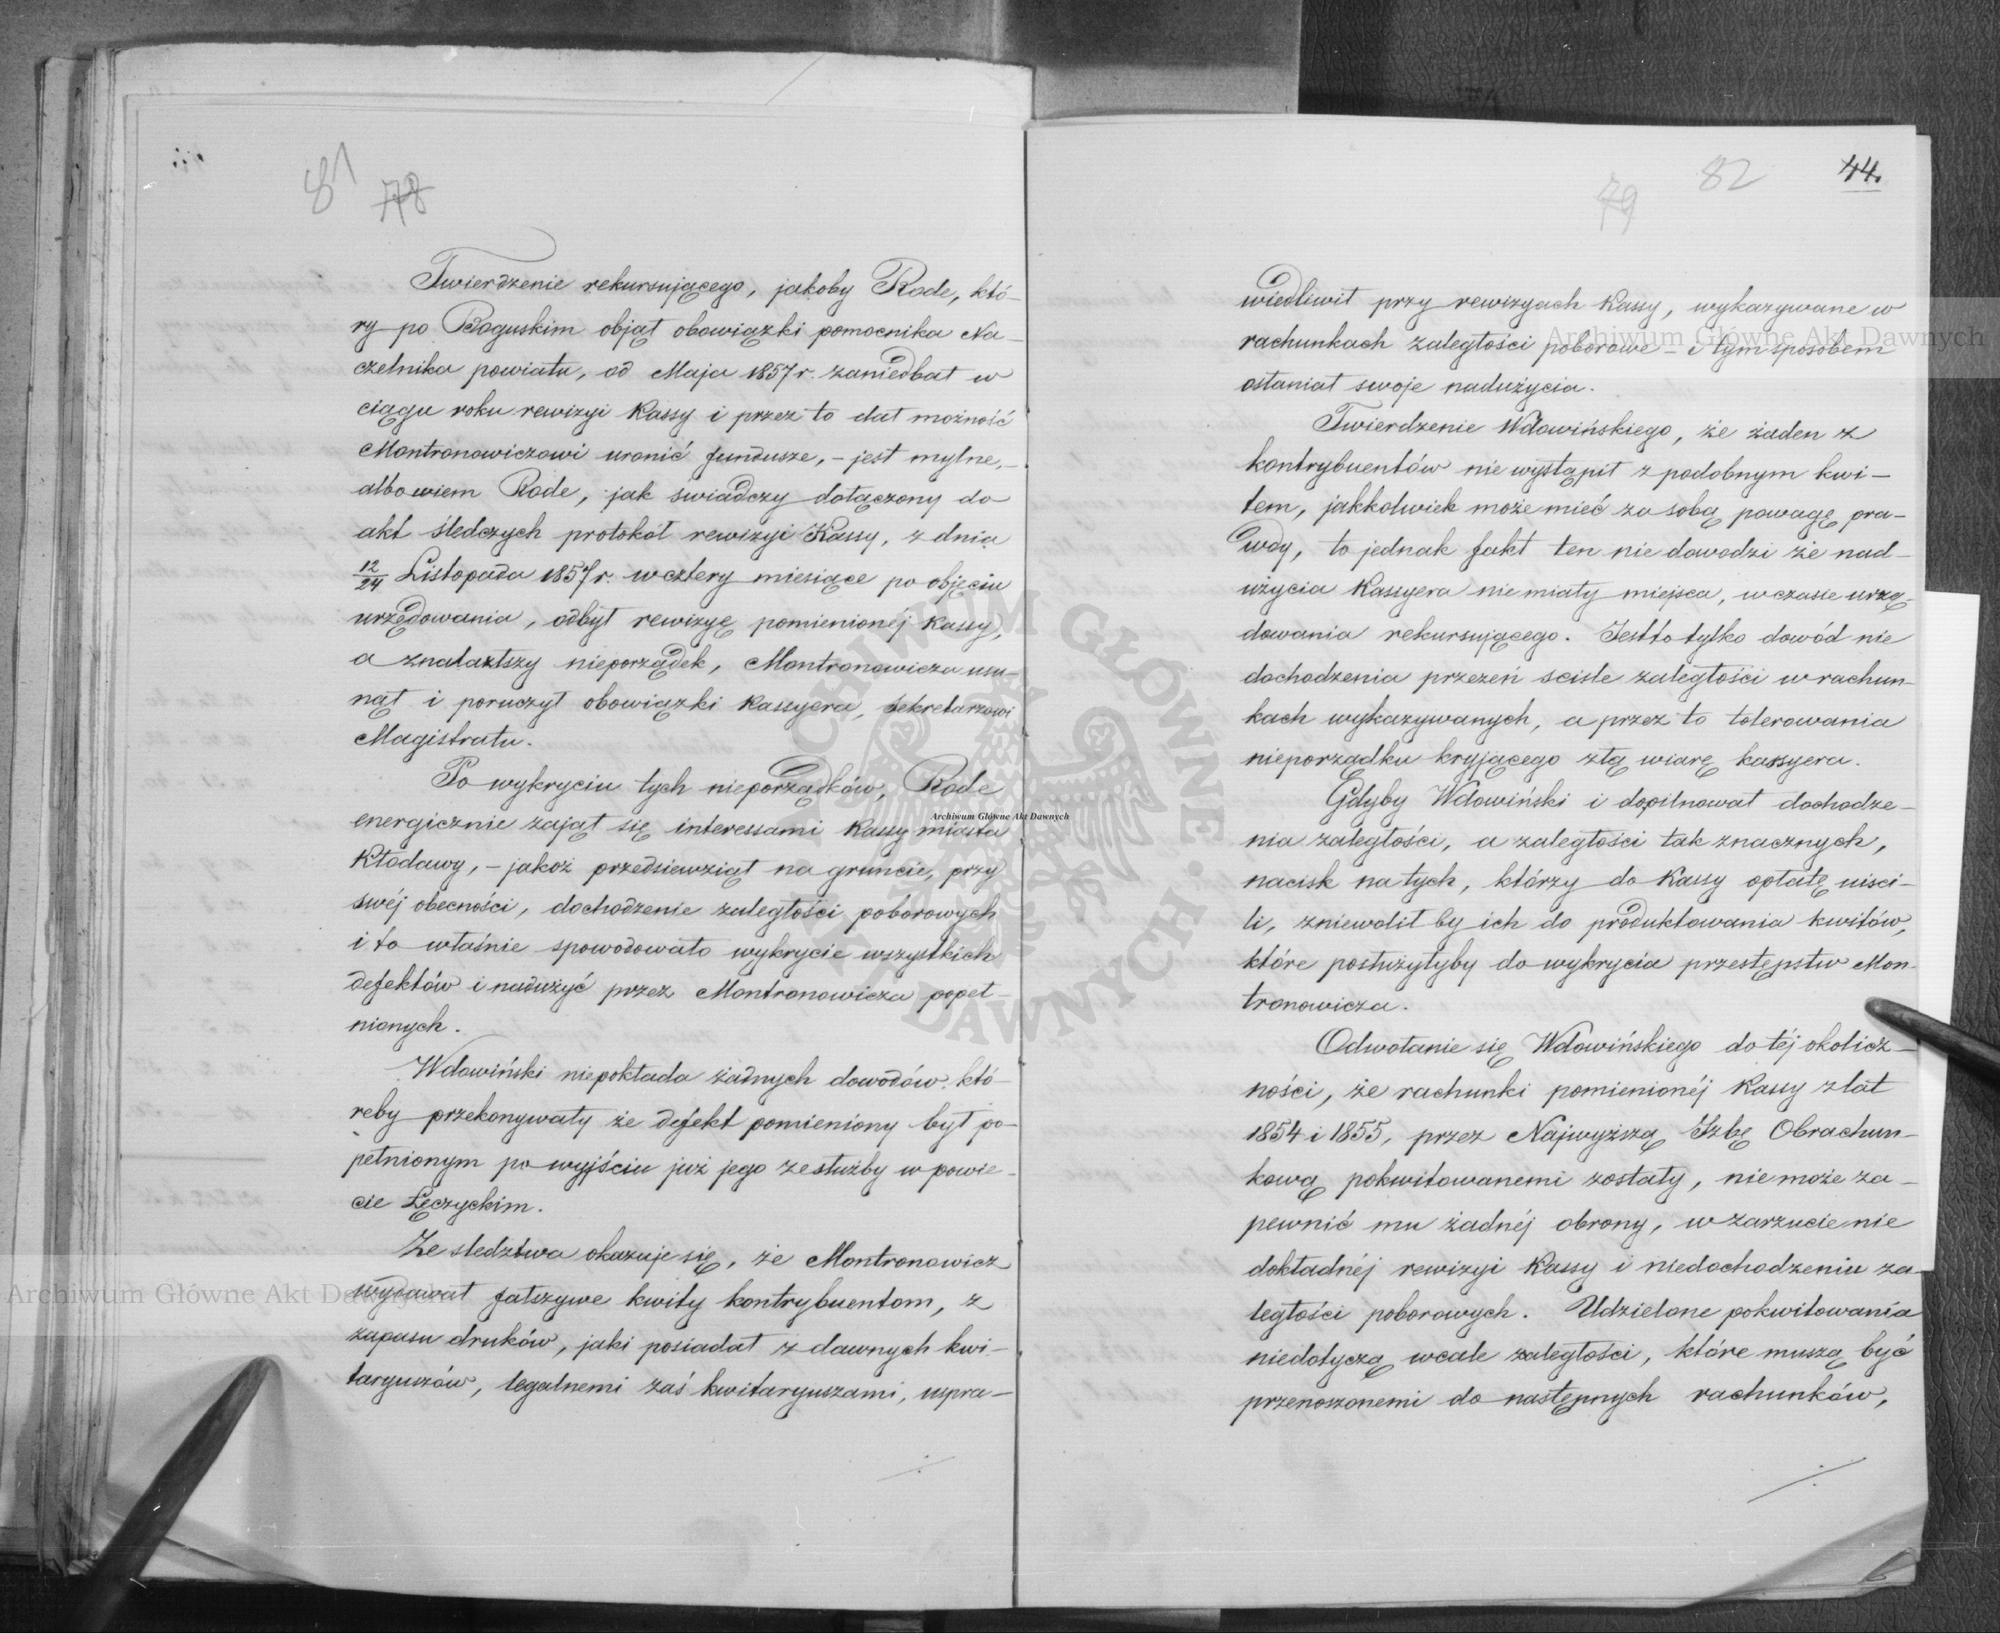 81 78
Twierdzenie rekursującego, jakoby Rode, któ-
ry po Boguskim objął obowiązki pomocnika Na-
czelnika powiatu, od Maja 1857 r. zaniedbał w
ciągu roku rewizyi Kassy i przez to dał możność
Montronowiczowi uronić fundusze, - jest mylne, -
albowiem Rode, jak świadczy dołączony do
akt śledczych protokół rewizyi Kassy, z dnia
12/24 Listopada 1857 r. w cztery miesiące po objęciu
urzędowania, odbył rewizyę pomienionéj Kassy,
a znalazłszy nieporządek, Montronowicza usu-
nął i poruczył obowiązki Kassyera, Sekretarzowi
Magistratu.
Po wykryciu tych nieporządków, Rode
energicznie zajął się interessami Kassy miasta
Kłodawy, - jakoż przedsiewziął na gruncie, przy
swéj obecności, dochodzenie zaległości poborowych
i to właśnie spowodowało wykrycie wszystkich
defektów i nadużyć przez Montronowicza popeł-
nionych.
Wdowiński niepokłada żadnych dowodów, któ-
reby przekonywały że defekt pomieniony był po-
pełnionym po wyjściu już jego ze służby w powie-
cie Łęczyckim.
Ze sledztwa okazuje się, że Montronowicz
wydawał fałszywe kwity kontrybuentom, z
zapasu druków, jaki posiadał z dawnych kwi-
taryuszów, legalnemi zaś kwitaryuszami, uspra-
79 82 44.
wiedliwił przy rewizyach Kassy, wykazywane w
rachunkach zaległości poborowe - i tym sposobem
osłaniał swoje nadużycia.
Twierdzenie Wdowińskiego, że żaden z
kontrybuentów nie wystąpił z podobnym kwi-
tem, jakkolwiek może mieć za sobą powagę pra-
wdy, to jednak fakt ten nie dowodzi że nad-
użycia Kassyera nie miały miejsca, w czasie urzę-
dowania rekursującego. Jest to tylko dowód nie
dochodzenia przezeń sciśle zaległości w rachun-
kach wykazywanych, a przez to tolerowania
nieporządku kryjącego złą wiarę kassyera.
Gdyby Wdowiński i dopilnował dochodze-
nia zaległości, a zaległości tak znacznych,
nacisk na tych, którzy do Kassy opłatę uisci-
li, zniewolił by ich do produktowania kwitów,
które posłużyłyby do wykrycia przestępstw Mon-
tronowicza.
Odwołanie się Wdowińskiego do téj okolicz-
ności, że rachunki pomienionéj Kassy z lat
1854 i 1855, przez Najwyższą Izbę Obrachun-
kową pokwitowanemi zostały, nie może za-
pewnić mu żadnéj obrony, w zarzucie nie
dokładnéj rewizyi Kassy i niedochodzeniu za-
ległości poborowych. Udzielone pokwitowania
niedotyczą wcale zaległości, które muszą być
przenoszonemi do następnych rachunków,
Archiwum Główne Akt Dawnych
Archiwum Główne Akt Dawnych
Archiwum Główne Akt Dawnych
ARCHIWUM GŁÓWNE AKT DAWNYCH